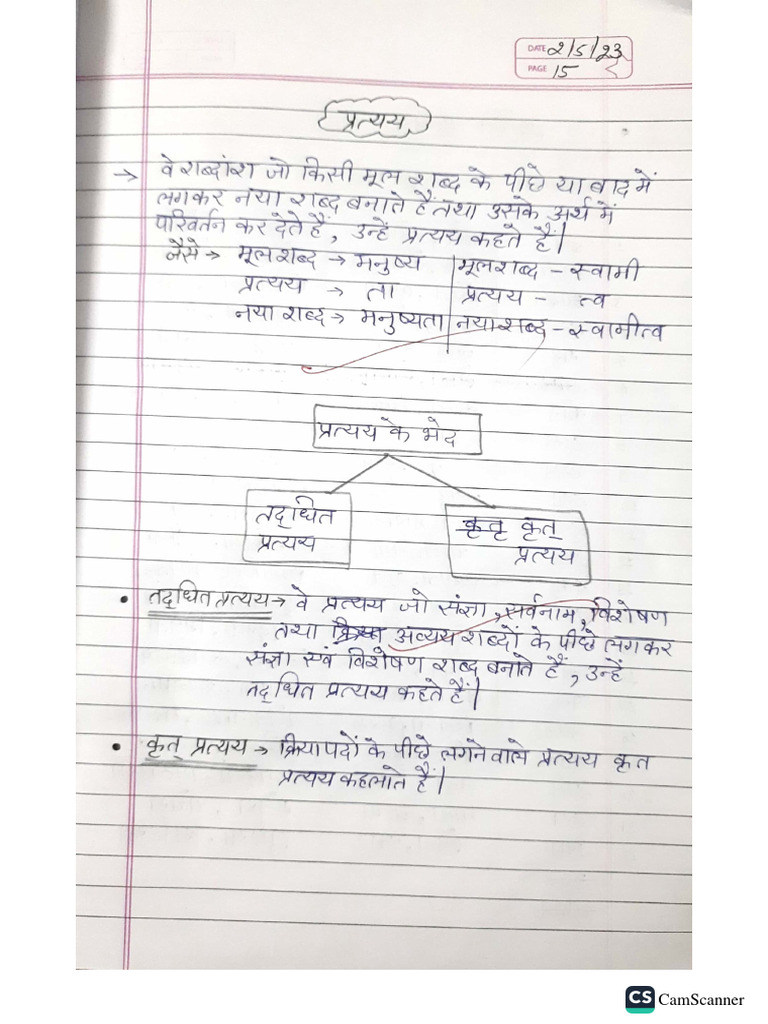 DATE 2/5/23
PAGE 15
प्रत्यय
→ वे शब्दांश जो किसी मूल शब्द के पीछे या बाद में
लगकर नया शब्द बनाते हैं तथा उसके अर्थ में
परिवर्तन कर देते हैं, उन्हें प्रत्यय कहते हैं|
जैसे → मूल शब्द → मनुष्य | मूल शब्द – स्वामी
प्रत्यय → ता | प्रत्यय – त्व
नया शब्द → मनुष्यता | नया शब्द – स्वामीत्व
प्रत्यय के भेद
तद्धित
प्रत्यय
कृतृ कृत्
प्रत्यय
• तद्धित प्रत्यय → वे प्रत्यय जो संज्ञा, सर्वनाम, विशेषण
तथा क्रिया अव्यय शब्दों के पीछे लगकर
संज्ञा एवं विशेषण शब्द बनाते हैं, उन्हें
तद्धित प्रत्यय कहते हैं|
• कृत् प्रत्यय → क्रियापदों के पीछे लगने वाले प्रत्यय कृत
प्रत्यय कहलाते हैं|
CS CamScanner